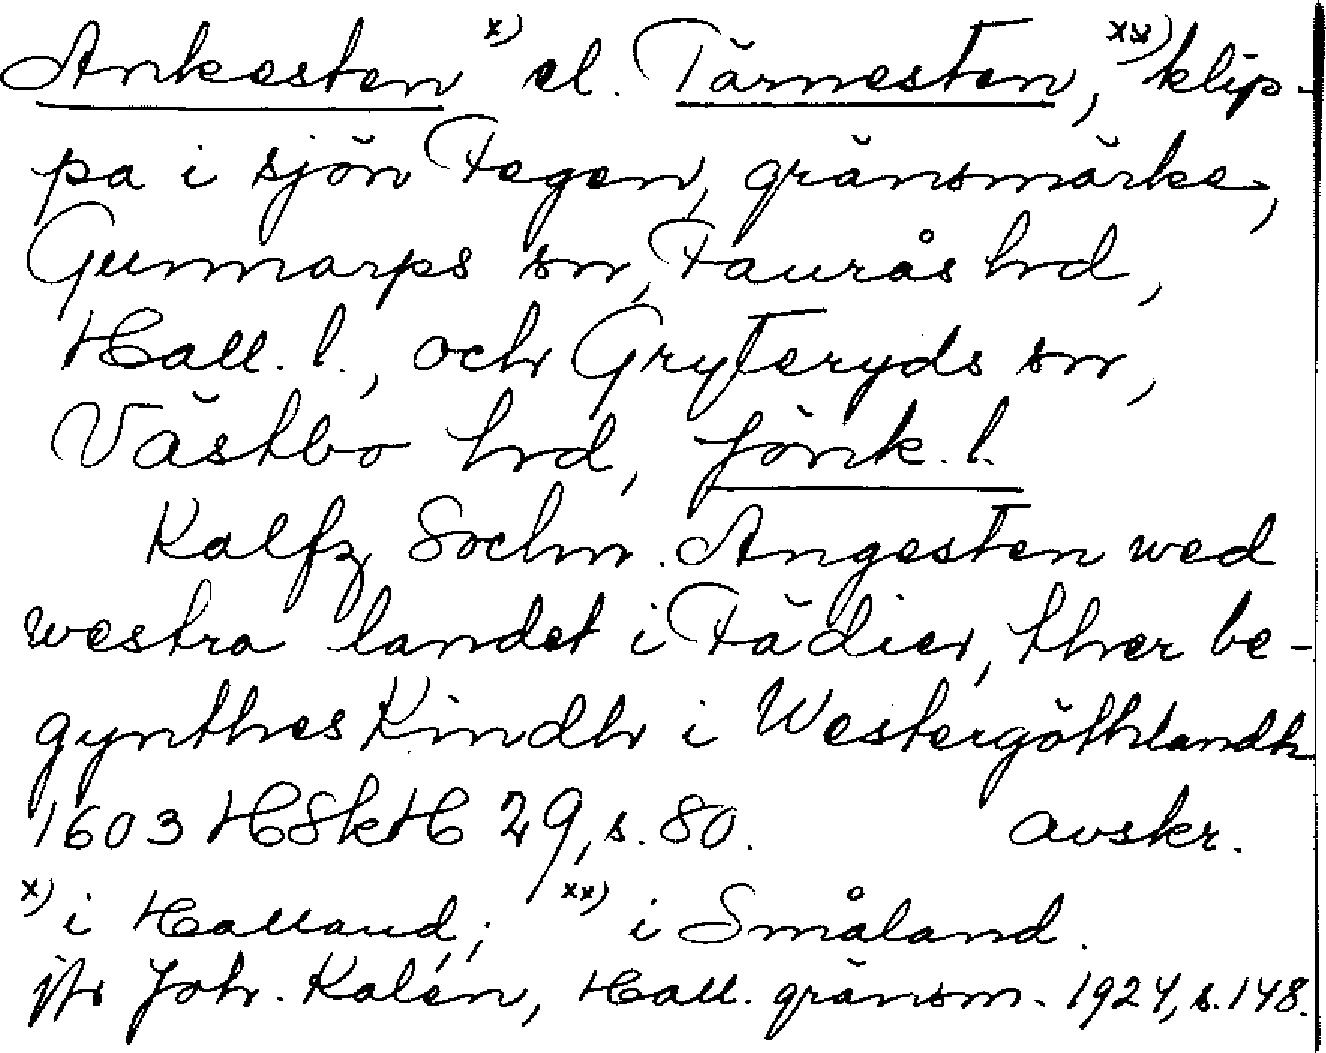 Ankesten x) el. Tärnesten, xx) klip-
pa i sjön Fegen, gränsmärke,
Gunnarps sn, Faurås hd,
Hall. l., och Gryteryds sn,
Västbo hd, Jönk. l.
Kalfz Sochn. Angesten wed
westra landet i Fädier, ther be-
gynthes Kindh i Westergöthlandh
1603 HSkH 29, s. 80. avskr.
x) i Halland; xx) i Småland.
jfr Joh. Kalén, Hall. gränsm. 1924, s. 148.